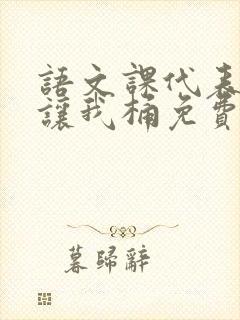 語文課代表
讓我桶免費
暮歸辭